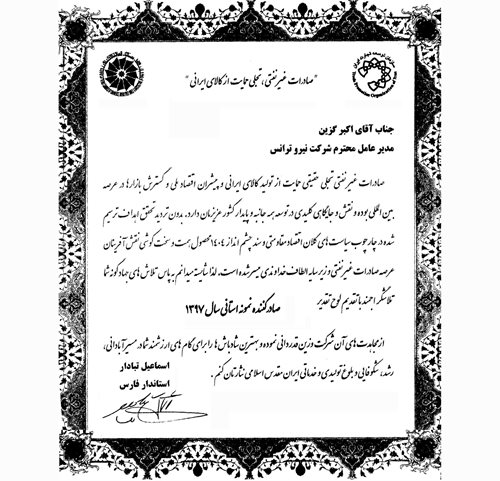 "صادرات غیرنفتی، تجلی حمایت از کالای ایرانی"
جناب آقای اکبر گزین
مدیر عامل محترم شرکت نیرو ترانس
صادرات غیرنفتی تجلی حقیقی حمایت از تولید کالای ایرانی و پیشران اقتصاد ملی و گسترش بازارها در عرصه
بین المللی بوده و نقش و جایگاهی کلیدی در توسعه همه جانبه و پایدار کشور عزیزمان دارد، بدون تردید تحقق اهداف ترسیم
شده در چارچوب سیاست های کلان اقتصاد مقاومتی و سند چشم انداز ۱۴۰۴ محصول همت و سخت کوشی نقش آفرینان
عرصه صادرات غیرنفتی و زیر سایه الطاف خداوندی میسر شده است. لذا شایسته میدانم به پاس تلاش های جهادگونه شما
تلاشگر ارجمند با تقدیم لوح تقدیر
صادر کننده نمونه استانی سال ۱۳۹۷
از مجاهدت های آن شرکت وزین قدردانی نموده و بهترین شادباش ها را برای گام های ارزشمندتان در مسیر آبادانی،
رشد، شکوفایی و بلوغ تولیدی و خدماتی ایران مقدس اسلامی نثارتان کنم.
اسماعیل تبادار
استاندار فارس